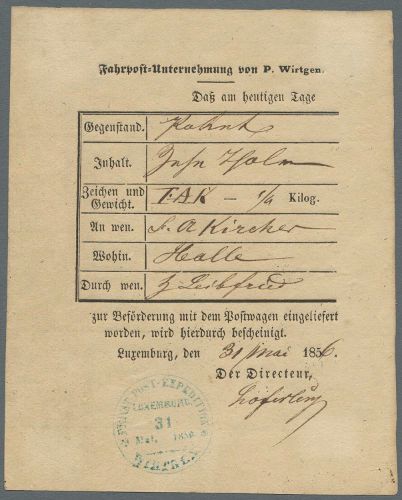 Fahrpost-Unternehmung von P. Wirtgen.
Daß am heutigen Tage
Gegenstand. Paket
Inhalt.
Zeichen und Gewicht. FAK — Kilog.
An wen. F. A Kircher
Wohin. Halle
Durch wen. Leibfried
zur Beförderung mit dem Postwagen eingeliefert
worden, wird hierdurch bescheinigt.
Luxemburg, den 31 Mai 1856.
Der Directeur,
POST-EXPEDITION
LUXEMBURG.
31
Mai. 1856
WIRTGEN